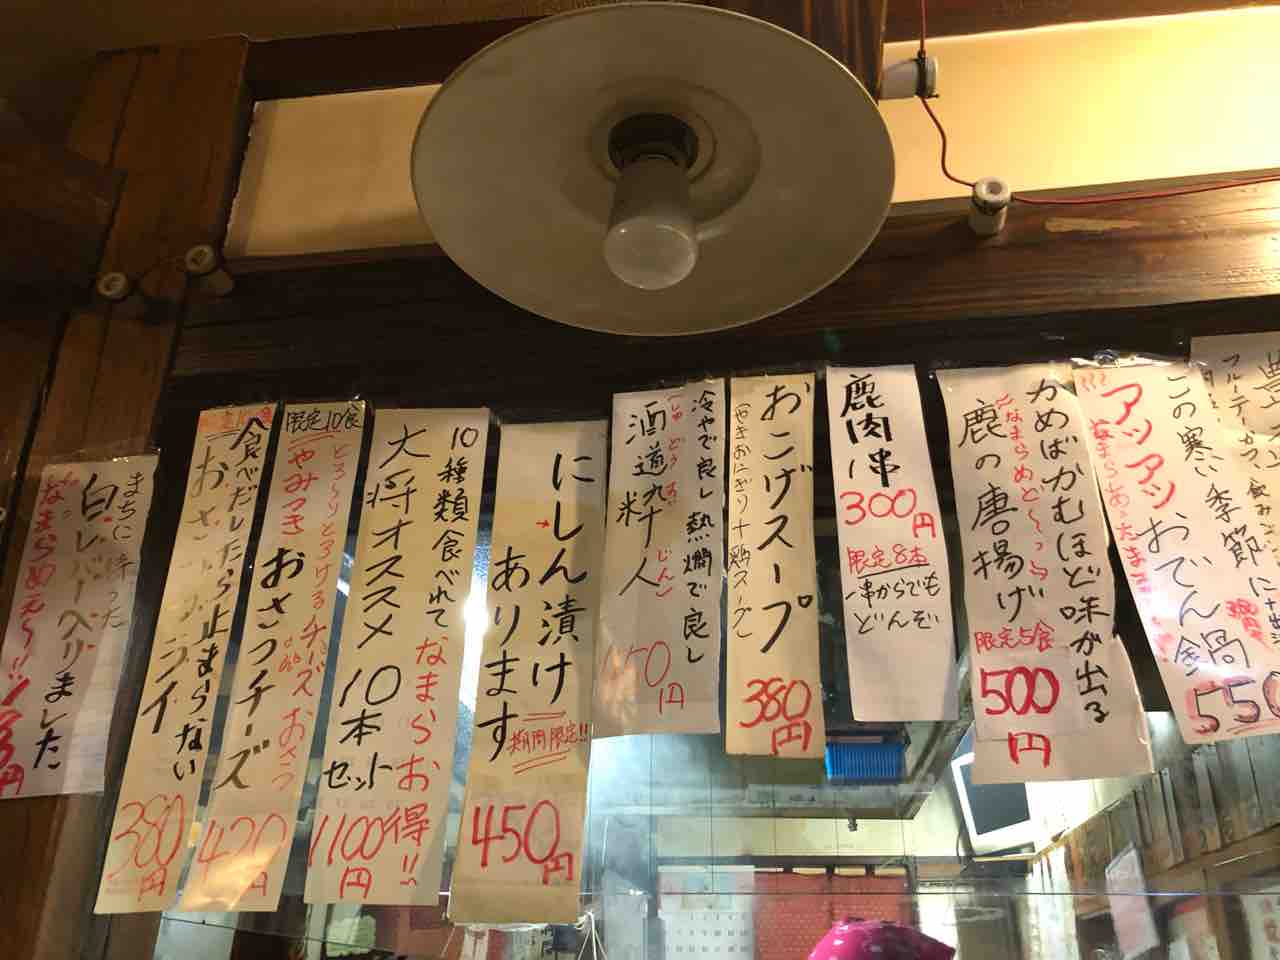 まちに待った
白レバーへリました
なまらめえ〜!!
円
食べだしたら止まらない
380円
限定10食
とろ〜りとろけるチーズ おさつ
やみつき
おさつチーズ
420円
10種類食べれて なまらお得!!
大将オススメ 10本セット
1100円
にしん漬け
あります
期間限定!!
450円
冷やで良し 熱燗で良し
酒道粋人
しゅ どう すい じん
円
おこげスープ
(やきおにぎり+鶏スープ)
380円
鹿肉串
300円
限定8本
一串からでも
どんぞ
かめばかむほど味が出る
〜なまらめど〜っ
鹿の唐揚げ
限定5食
500円
この寒い季節に
アッツアツ おでん鍋
550
フルーティーかつ